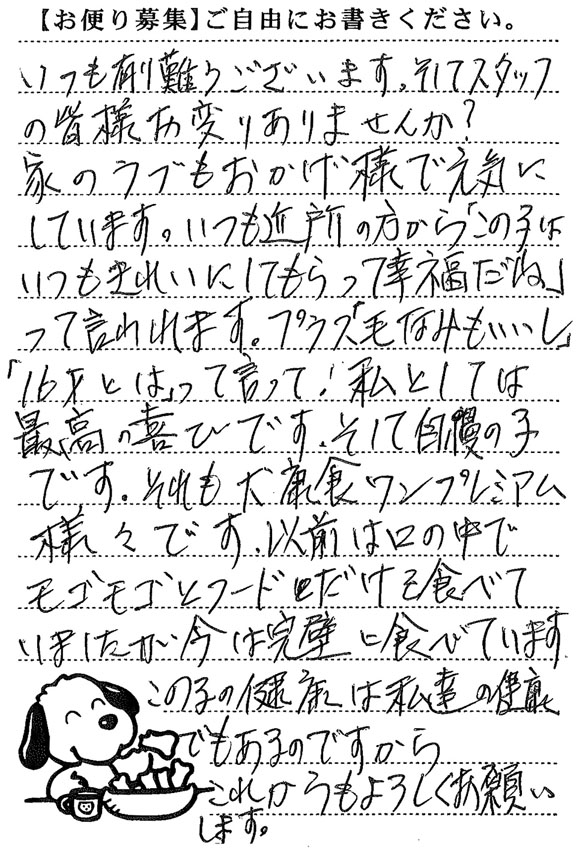 【お便り募集】ご自由にお書きください。
いつも有難うございます。そしてスタッフ
の皆様お変りありませんか?
家のラブもおかげ様で元気に
しています。いつも近所の方から「この子は
いつもきれいにしてもらって幸福だね」
って言われます。プラス「毛なみもいいし」
「16才とは」って言って!私としては
最高の喜びです。そして自慢の子
です。それも犬康食ワンプレミアム
様々です。以前は口の中で
モゴモゴとフードだけを食べて
いましたが今は完璧に食べています
この子の健康は私達の健康
でもあるのですから
これからもよろしくお願い
します。